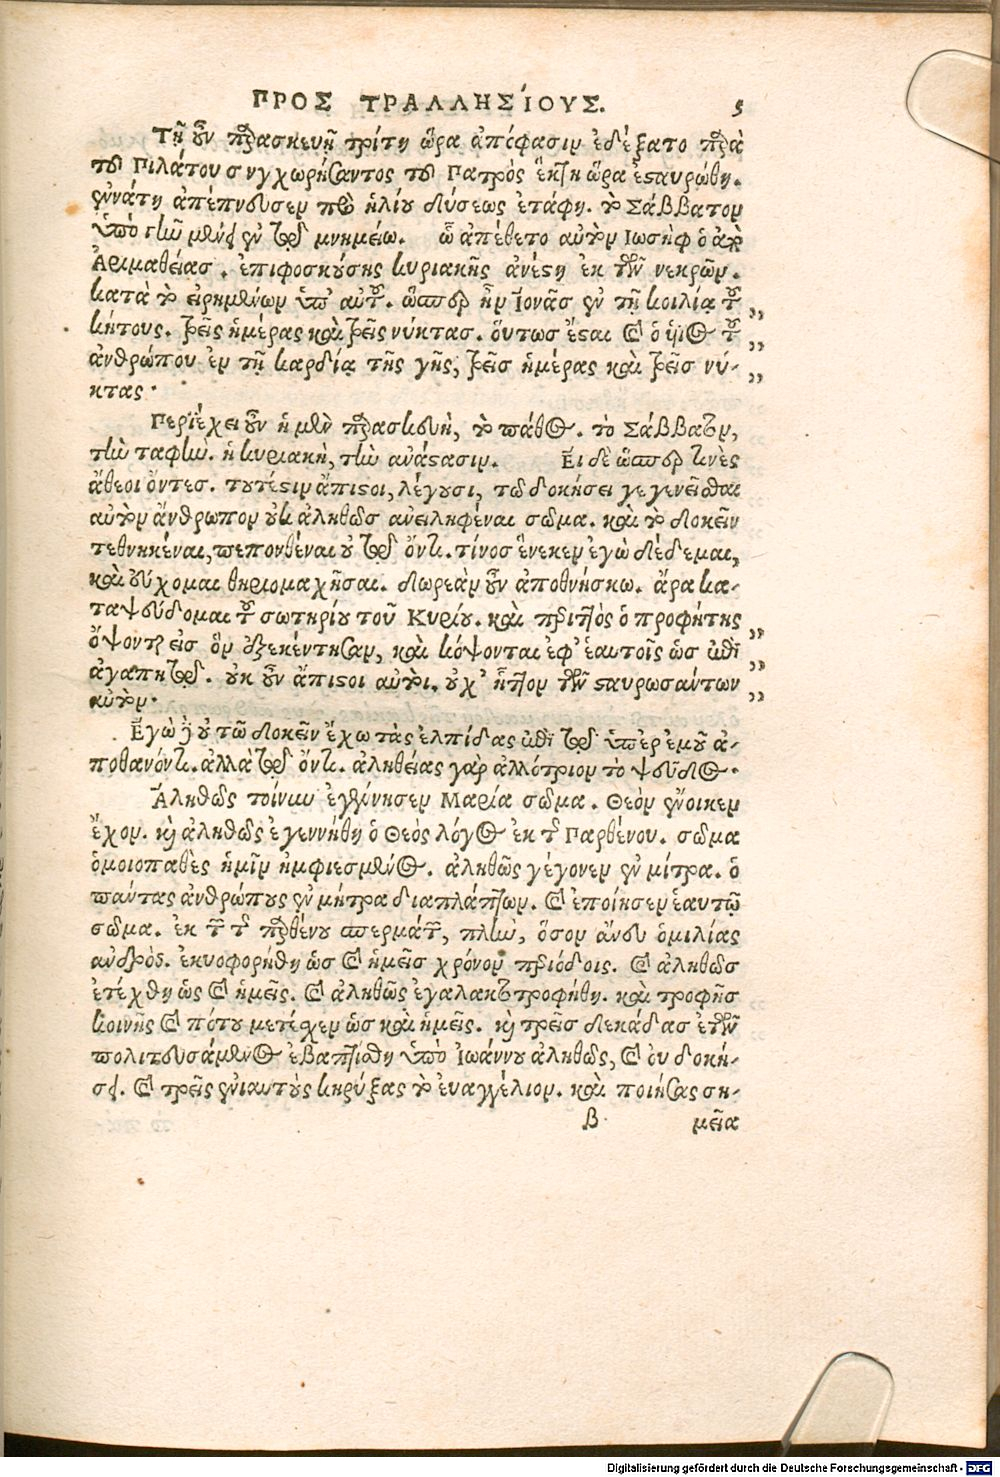 ΠΡΟΣ ΤΡΑΛΛΗΣΙΟΥΣ. 5
Τῇ οὖν παρασκευῇ τρίτῃ ὥρα ἀπόφασιν ἐδέξατο παρὰ
τοῦ Πιλάτου συγχωρήσαντος τοῦ Πατρὸς ἕκτῃ ὥρα ἐσταυρώθη.
ἐννάτῃ ἀπέπνευσεν πρὸ ἡλίου δύσεως ἐτάφη. τὸ Σάββατον
ὑπὸ γῆν μένει ἐν τῷ μνημείω. ᾧ ἀπέθετο αὐτὸν Ἰωσὴφ ὁ ἀπὸ
Ἀριμαθείας. ἐπιφοσκούσης κυριακῆς ἀνέστη ἐκ τῶν νεκρῶν.
κατὰ τὸ εἰρημένων ὑπ' αὐτοῦ. ὥσπερ ἦν Ἰονᾶς ἐν τῇ κοιλίᾳ τοῦ „
κήτους. τρεῖς ἡμέρας καὶ τρεῖς νύκτας. οὕτως ἔσται καὶ ὁ ὑιὸς τοῦ „
ἀνθρώπου ἐν τῇ καρδίᾳ τῆς γῆς, τρεῖς ἡμέρας καὶ τρεῖς νύ- „
κτας.
Περϊέχει οὖν ἡ μὲν παρασκευὴ, τὸ πάθος. τὸ Σάββατον,
τὴν ταφὴν. ἡ κυριακὴ, τὴν ἀνάστασιν. Εἰ δὲ ὥσπερ τινὲς
ἄθεοι ὄντες. τουτέστιν ἄπιστοι, λέγουσι, τῶ δοκήσει γεγενεῖσθαι
αὐτὸν ἄνθρωπον οὐκ ἀληθῶς ἀνειληφέναι σῶμα. καὶ τὸ δοκεῖν
τεθνηκέναι, πεπονθέναι οὐ τῷ ὄντι. τίνος ἕνεκεν ἐγὼ δέδεμαι,
καὶ εὔχομαι θηριομαχῆσαι. δωρεὰν οὖν ἀποθνήσκω. ἄρα κα-
ταψεύδομαι τοῦ σωτηρίου τοῦ Κυρίου. καὶ περιττὸς ὁ προφήτης
ὄψονται εἰς ὃν ἐξεκέντησαν, καὶ κόψονται ἐφ' ἑαυτοῖς ὡς ἐπὶ „
ἀγαπητῷ. οὐκ οὖν ἄπιστοι αὐτοι, οὐχ' ἧττον τῶν σταυρωσάντων „
αὐτόν. „
Ἐγὼ δὲ οὐ τῶ δοκεῖν ἔχω τὰς ἐλπίδας ἐπὶ τῷ ὑπὲρ ἐμοῦ ἀ-
ποθανόντι. ἀλλὰ τῷ ὄντι. ἀληθείας γὰρ ἀλλότριον τὸ ψεῦδος.
Ἀληθῶς τοίνυν ἐγέννησεν Μαρία σῶμα. Θεὸν ἔνοικεν
ἔχον. καὶ ἀληθῶς ἐγεννήθη ὁ Θεὸς λόγος ἐκ τῆς Παρθένου. σῶμα
ὁμοιοπαθὲς ἡμῖν ἠμφιεσμένος. ἀληθῶς γέγονεν ἐν μίτρα. ὁ
πάντας ἀνθρώπους ἐν μήτρα διαπλάττων. καὶ ἐποίησεν ἑαυτῷ
σῶμα. ἐκ τῶν τῆς παρθένου σπερμάτων, πλὴν, ὅσον ἄνευ ὁμιλίας
ἀνδρός. ἐκυοφορήθη ὡς καὶ ἡμεῖς χρόνον περιόδοις. καὶ ἀληθῶς
ἐτέχθη ὡς καὶ ἡμεῖς. καὶ ἀληθῶς ἐγαλακτοτροφήθη. καὶ τροφῆς
κοινῆς καὶ πότου μετέχεν ὡς καὶ ἡμεῖς. καὶ τρεῖς δεκάδας ἐτῶν
πολιτευσάμενος ἐβαπτίσθη ὑπὸ Ἰωάννου ἀληθῶς, καὶ ὀυ δοκή-
σει. καὶ τρεῖς ἐνιαυτοὺς κηρύξας τὸ ἐυαγγέλιον. καὶ ποιήσας ση-
B μεῖα
Digitalisierung gefördert durch die Deutsche Forschungsgemeinschaft - DFG